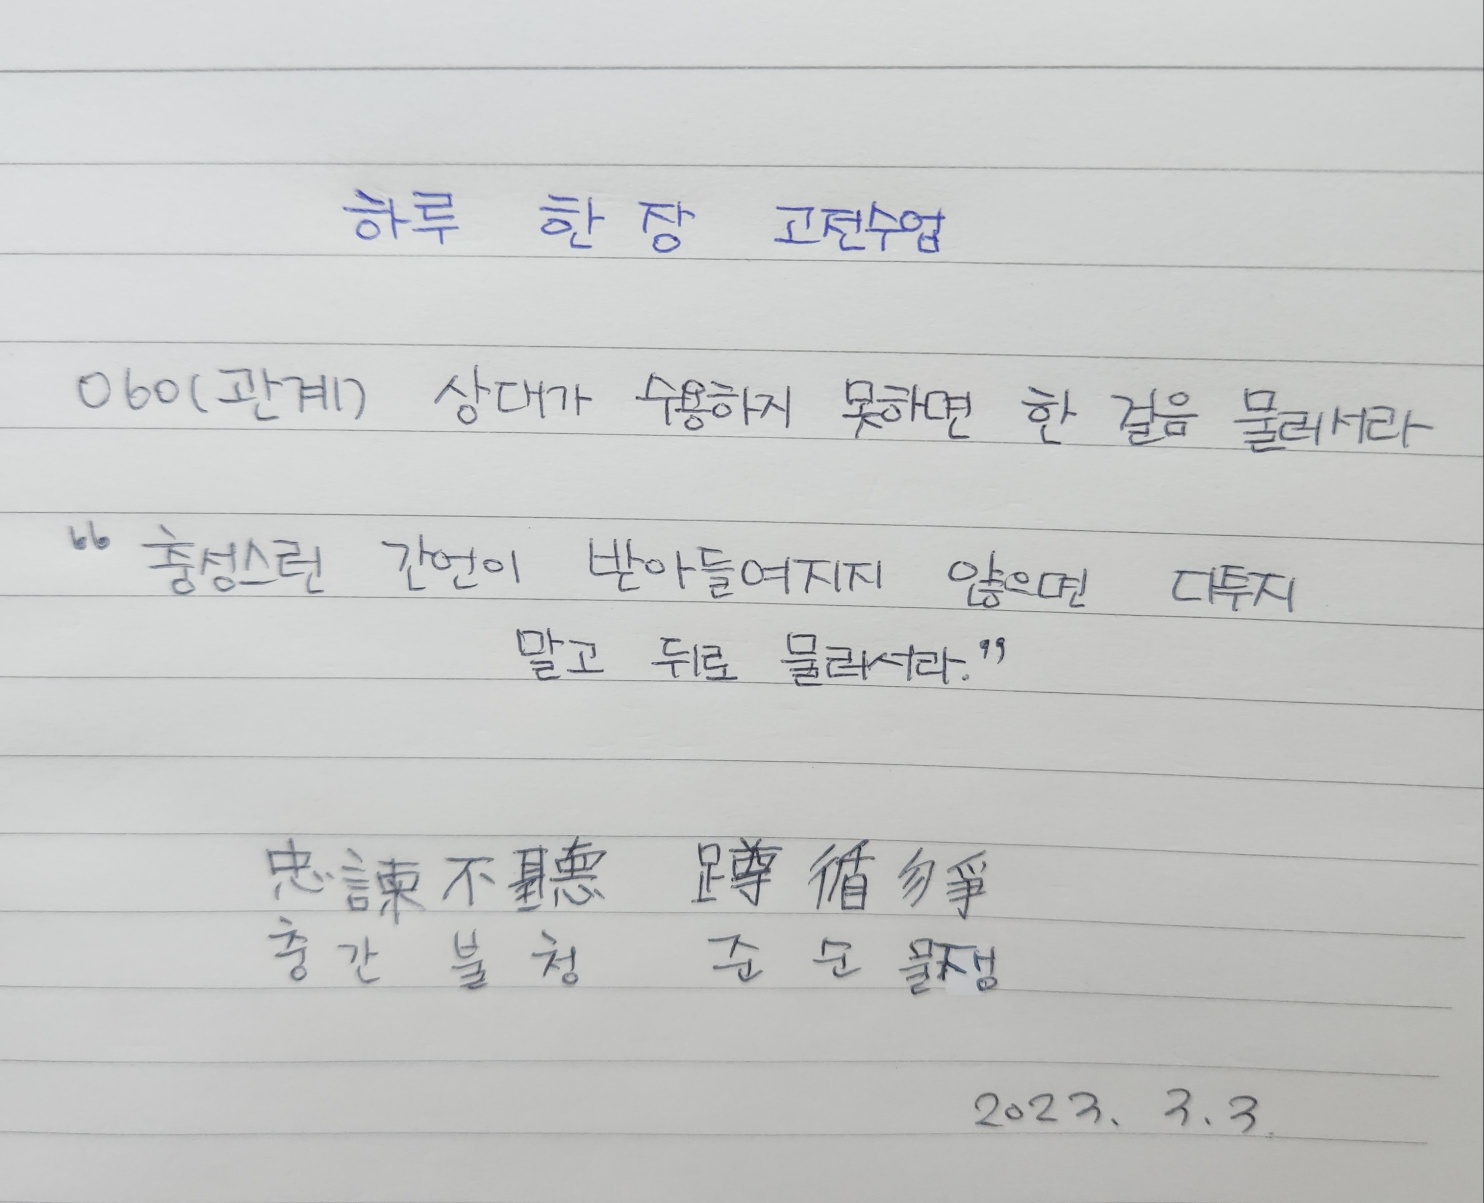 하루 한 장 고전수업
060(관계) 상대가 수용하지 못하면 한 걸음 물러서라
“충성스런 간언이 받아들여지지 않으면 다투지
말고 뒤로 물러서라.”
忠諫不聽 蹲循勿爭
충간불청 준순물쟁
2023. 3. 3.